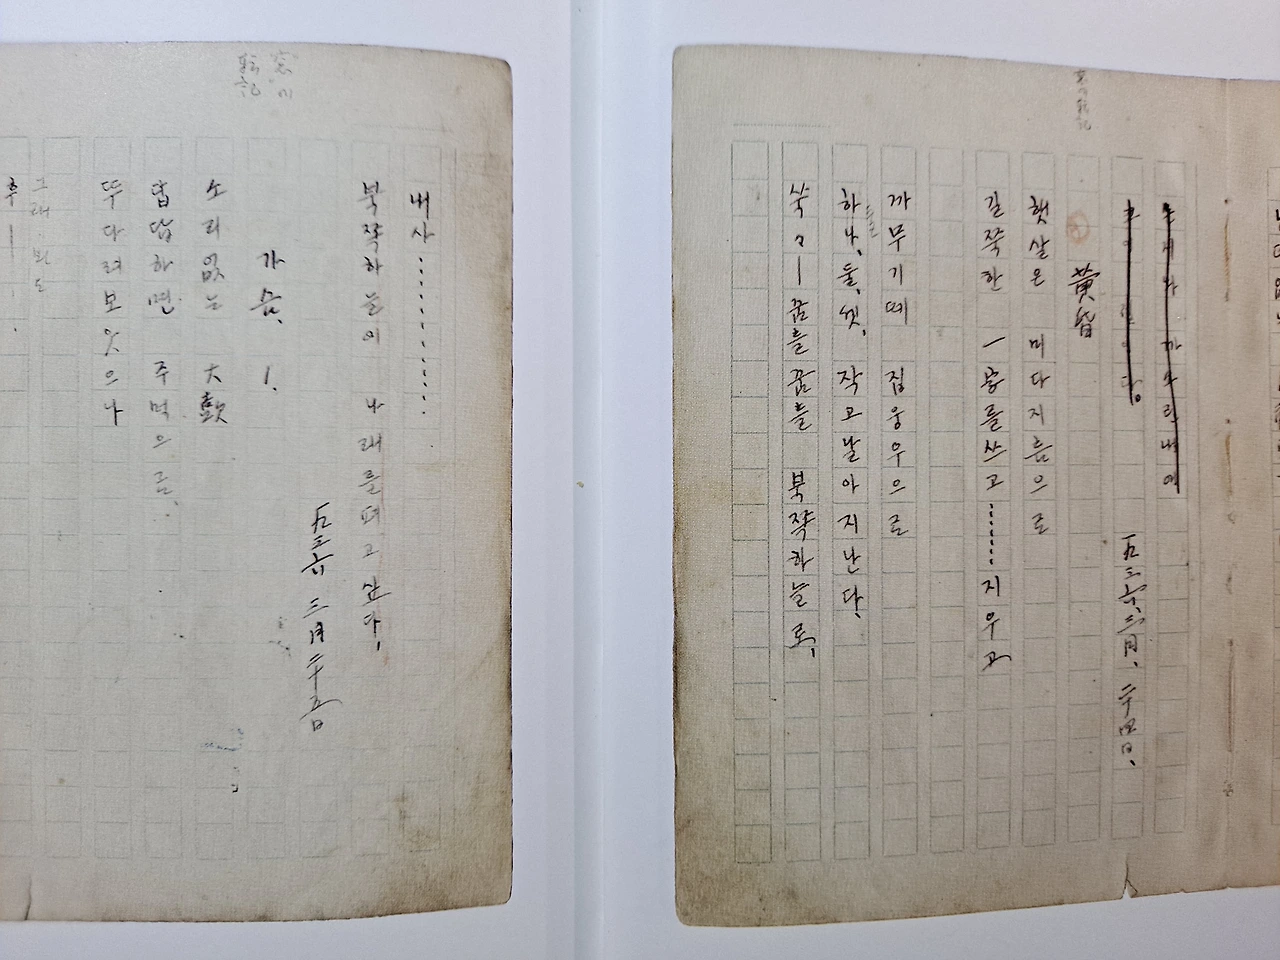 一九三六、三月、二十四日、
黃昏
햇살은 미다지틈으로
길쭉한 一字를쓰고………지우고
까무기떼 집웅우으로
하나, 둘, 셋, 작고날아지난다.
쑥々―꿈틀꿈틀 북쪽하늘로,
내사…………
북쪽하늘에 나래를펴고싶다.
一九三六 三月 二十五日
가슴. 1.
소리없는 大鼓
답답하면 주먹으로
뚜다려보앗으나
그래 봐도
후―